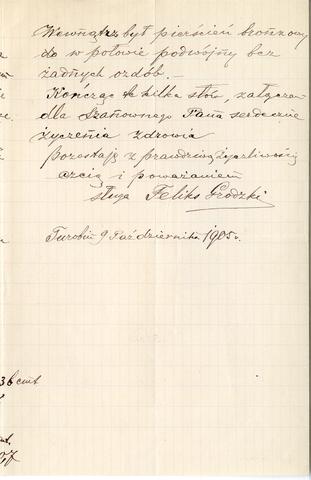 Wewnątrz był pierścień bronzowy
do w połowie podwójny bez
żadnych ozdób. —
Kończąc te kilka słów, załączam
dla Szanownego Pana serdeczne
życzenia zdrowia
pozostaję z prawdziwą życzliwością
czcią i poważaniem
sługa Feliks Grodzki
Turobin 9 Października 1905 r.
36 cmt